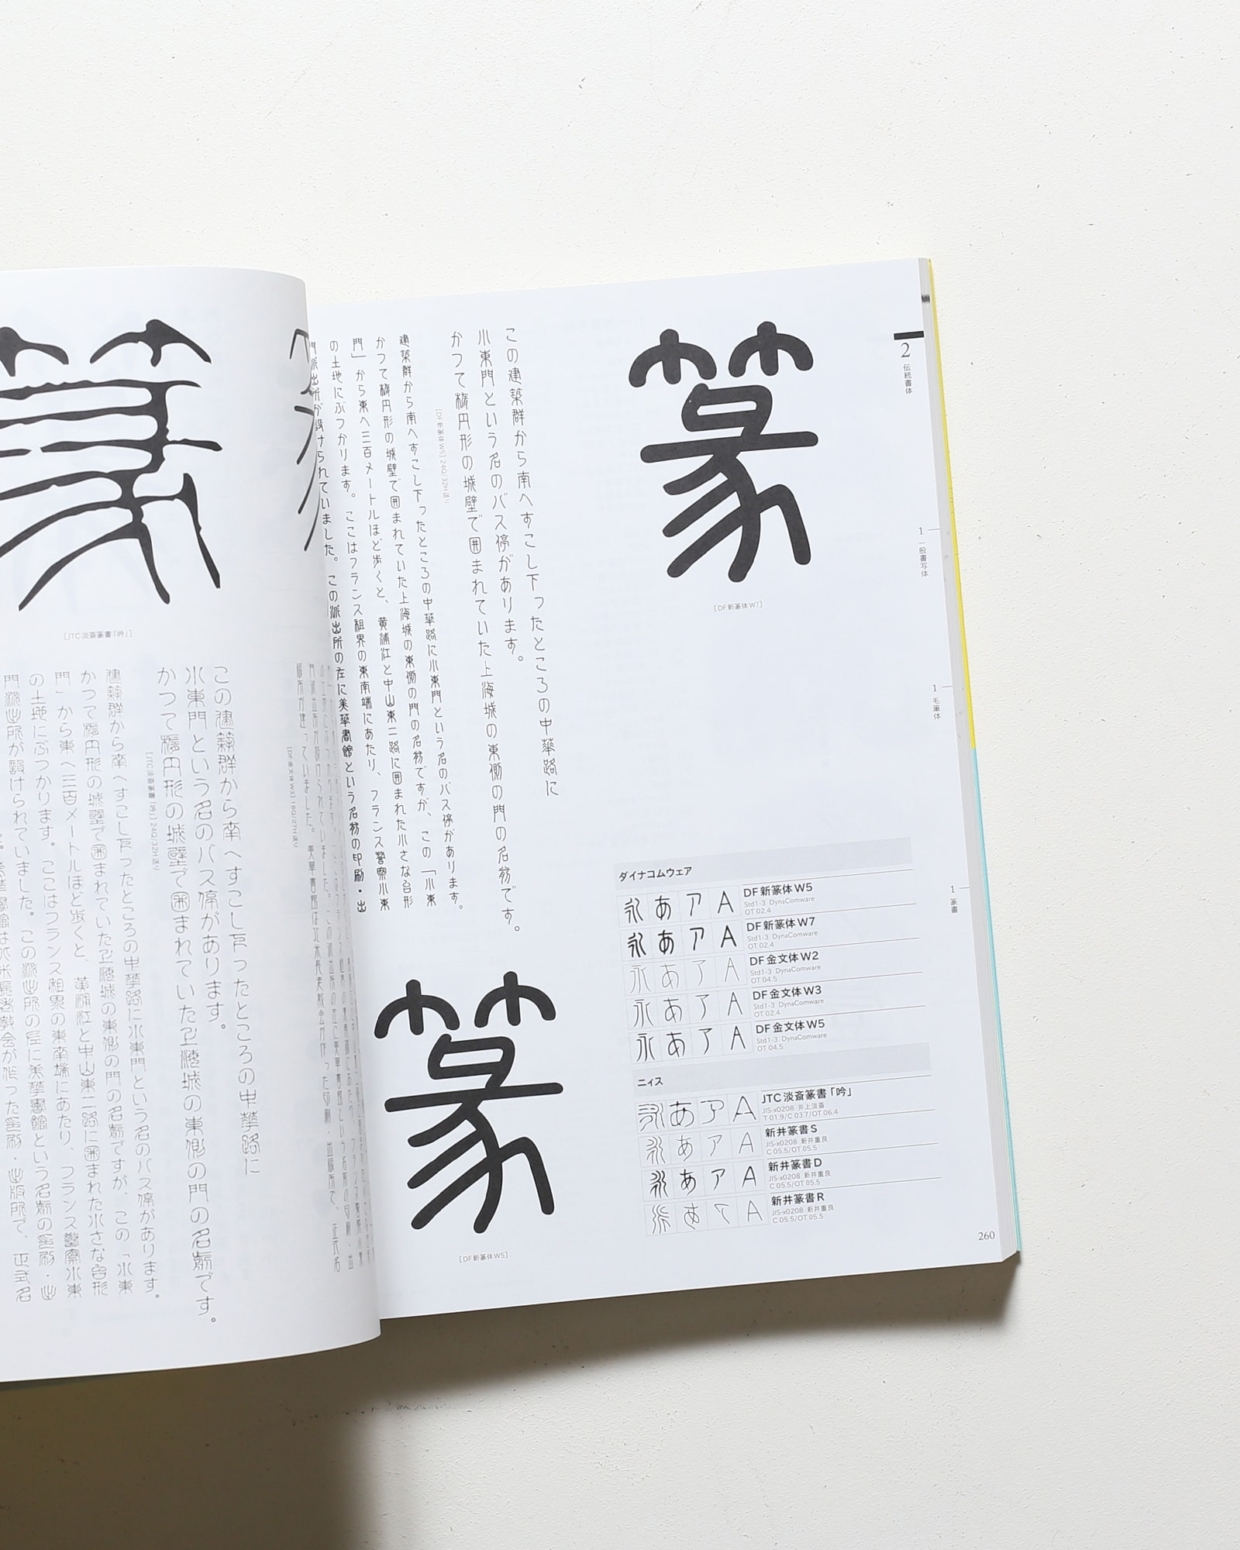 篆
[DF新篆体W7]
この建築群から南へすこし下ったところの中華路に
小東門という名のバス停があります。
かつて楕円形の城壁で囲まれていた上海城の東側の門の名称です。
[DF新篆体W5] 24Q/32H送り
建築群から南へすこし下ったところの中華路に小東門という名のバス停があります。
かつて楕円形の城壁で囲まれていた上海城の東側の門の名称ですが、この「小東
門」から東へ三百メートルほど歩くと、黄浦江と中山東二路に囲まれた小さな台形
の土地にぶつかります。ここはフランス租界の東南端にあたり、フランス警察小東
門派出所が設けられていました。この派出所の左に美華書館という名称の印刷・出
篆
[DF新篆体W5]
2
伝統書体
1
一般書写体
1
毛筆体
1
篆書
ダイナコムウェア
永 あ ア A
DF新篆体W5
Std1-3 DynaComware
OT 02.4
永 あ ア A
DF新篆体W7
Std1-3 DynaComware
OT 02.4
永 あ ア A
DF金文体W2
Std1-3 DynaComware
OT 04.5
永 あ ア A
DF金文体W3
Std1-3 DynaComware
OT 02.4
永 あ ア A
DF金文体W5
Std1-3 DynaComware
OT 04.5
ニィス
永 あ ア A
JTC淡斎篆書「吟」
JIS-x0208 井上淡斎
T 01.9/C 03.7/OT 06.4
永 あ ア A
新井篆書S
JIS-x0208 新井重良
C 05.5/OT 05.5
永 あ ア A
新井篆書D
JIS-x0208 新井重良
C 05.5/OT 05.5
永 あ ア A
新井篆書R
JIS-x0208 新井重良
C 05.5/OT 05.5
260
篆
[JTC淡斎篆書「吟」]
この建築群から南へすこし下ったところの中華路に
小東門という名のバス停があります。
かつて楕円形の城壁で囲まれていた上海城の東側の門の名称です。
[JTC淡斎篆書「吟」] 24Q/32H送り
建築群から南へすこし下ったところの中華路に小東門という名のバス停があります。
かつて楕円形の城壁で囲まれていた上海城の東側の門の名称ですが、この「小東
門」から東へ三百メートルほど歩くと、黄浦江と中山東二路に囲まれた小さな台形
の土地にぶつかります。ここはフランス租界の東南端にあたり、フランス警察小東
門派出所が設けられていました。この派出所の左に美華書館という名称の印刷・出